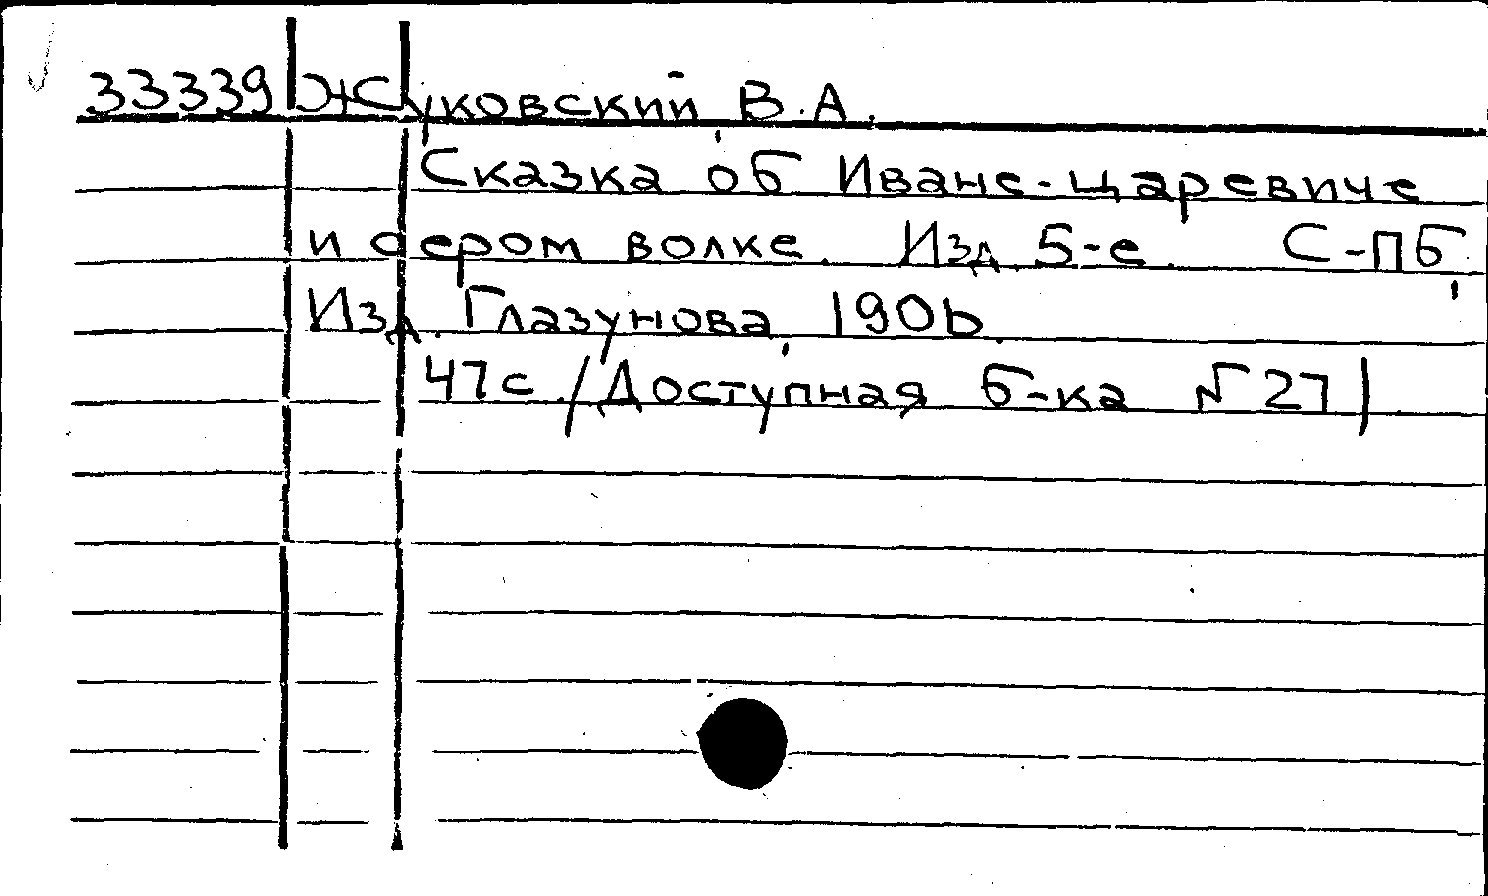 33339 Жуковский, В.А.
Сказка об Иване-царевиче
и сером волке. Изд. 5-е. С-ПБ,
Изд. Глазунова, 1906.
47с. /Доступная б-ка №27/